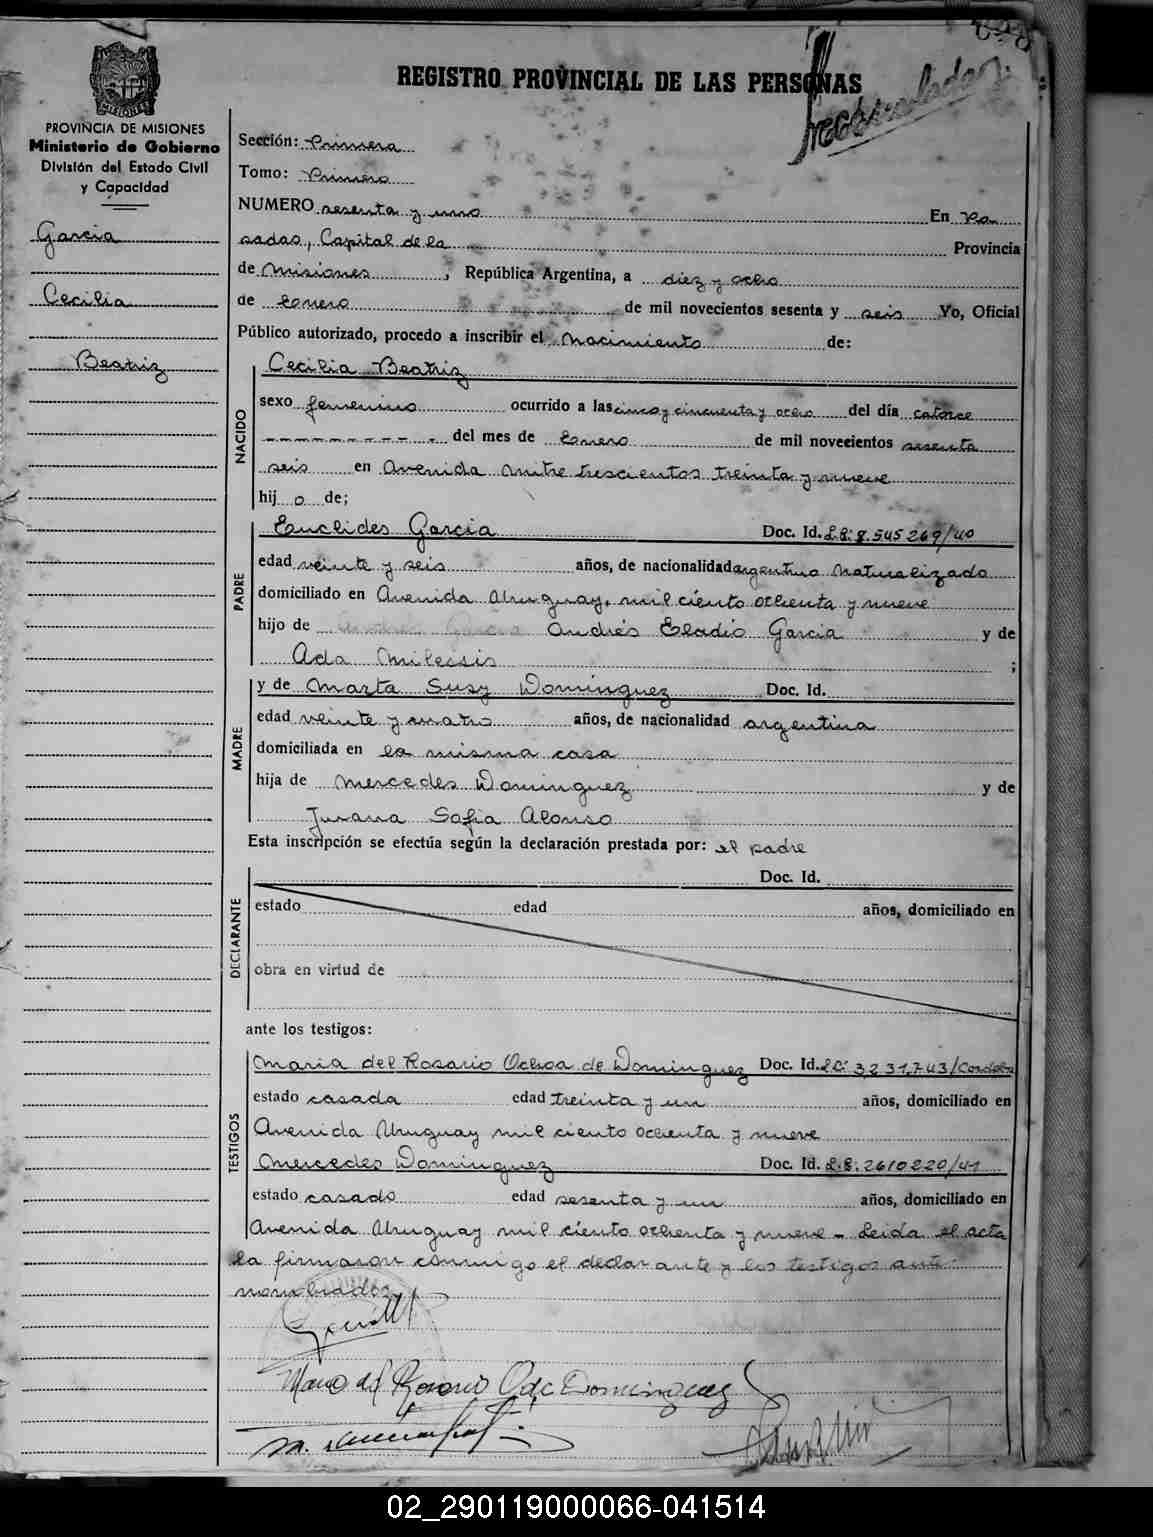 REGISTRO PROVINCIAL DE LAS PERSONAS
MISIONES
PROVINCIA DE MISIONES
Ministerio de Gobierno
División del Estado Civil
y Capacidad
Garcia
Cecilia
Beatriz
Sección: Primera
Tomo: Primero
NUMERO sesenta y uno En Po
sadas, Capital de la Provincia
de Misiones, República Argentina, a diez y ocho
de Enero de mil novecientos sesenta y seis Yo, Oficial
Público autorizado, procedo a inscribir el Nacimiento de:
NACIDO
Cecilia Beatriz
sexo femenino ocurrido a las cinco y cincuenta y ocho del día catorce
del mes de Enero de mil novecientos sesenta
seis en Avenida Mitre trescientos treinta y nueve
hij o de;
PADRE
Euclides Garcia Doc. Id. L.E: 8.545269/40
edad veinte y seis años, de nacionalidad argentino naturalizado
domiciliado en Avenida Uruguay, mil ciento ochenta y nueve
hijo de Andrés Eladio Garcia y de
Ada Milessis ;
MADRE
y de Marta Susy Dominguez Doc. Id.
edad veinte y cuatro años, de nacionalidad argentina
domiciliada en la misma casa
hija de Mercedes Dominguez y de
Juana Sofia Alonso
Esta inscripción se efectúa según la declaración prestada por: el padre
DECLARANTE
Doc. Id.
estado edad años, domiciliado en
obra en virtud de
ante los testigos:
TESTIGOS
Maria del Rosario Ochoa de Dominguez Doc. Id. L.C: 3.231.743/Cordoba
estado casada edad treinta y un años, domiciliado en
Avenida Uruguay mil ciento ochenta y nueve
Mercedes Dominguez Doc. Id. L.E: 2610220/41
estado casado edad sesenta y un años, domiciliado en
Avenida Uruguay mil ciento ochenta y nueve - Leida el acta
la firmaron conmigo el declarante y los testigos ante
nombrados
Maria del Rosario O de Dominguez
02_290119000066-041514